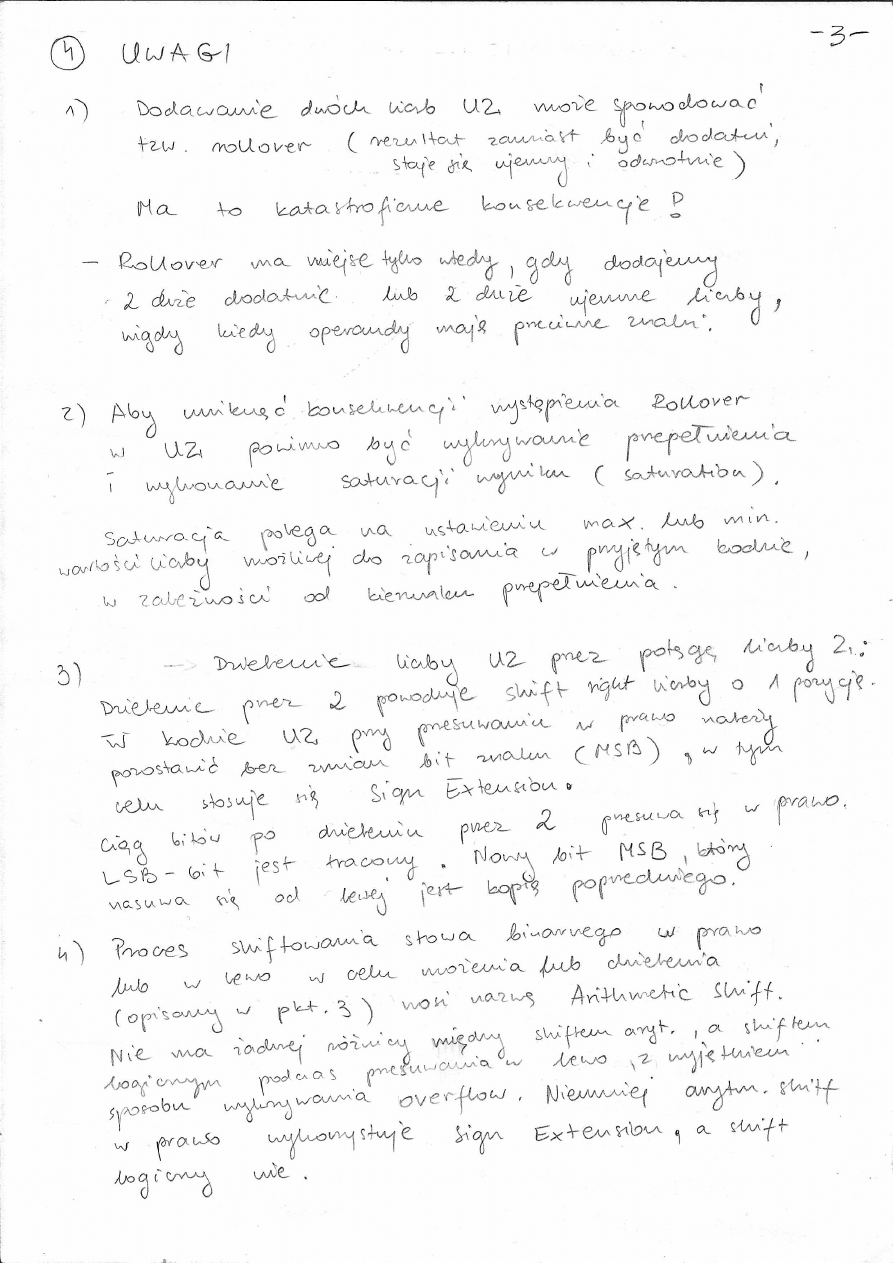 -3-
4 UWAGI
1) Dodawanie dwóch liczb U2 może spowodować
tzw. rollover (rezultat zamiast być dodatni,
staje się ujemny i odwrotnie)
Ma to katastroficzne konsekwencje!
- Rollover ma miejsce tylko wtedy, gdy dodajemy
2 duże dodatnie lub 2 duże ujemne liczby,
nigdy kiedy operandy mają przeciwne znaki.
2) Aby uniknąć konsekwencji wystąpienia Rollover
w U2 powinno być wykrywanie przepełnienia
i wykonanie saturacji wyniku (saturation).
Saturacja polega na ustawieniu max. lub min.
wartości liczby możliwej do zapisania w przyjętym kodzie,
w zależności od kierunku przepełnienia.
3) -> Dzielenie liczby U2 przez potęgę liczby 2:
Dzielenie przez 2 powoduje shift right liczby o 1 pozycję.
W kodzie U2 przy przesuwaniu w prawo należy
pozostawić bez zmian bit znaku (MSB), w tym
celu stosuje się Sign Extension.
Ciąg bitów po dzieleniu przez 2 przesuwa się w prawo.
LSB-bit jest tracony. Nowy bit MSB, który
nasuwa się od lewej jest kopią poprzedniego.
4) Proces shiftowania słowa binarnego w prawo
lub w lewo w celu mnożenia lub dzielenia
(opisany w pkt. 3) nosi nazwę Arithmetic Shift.
Nie ma żadnej różnicy między shiftem aryt., a shiftem
logicznym podczas przesuwania w lewo, z wyjątkiem
sposobu wykrywania overflow. Niemniej arytm. shift
w prawo wykorzystuje Sign Extension, a shift
logiczny nie.